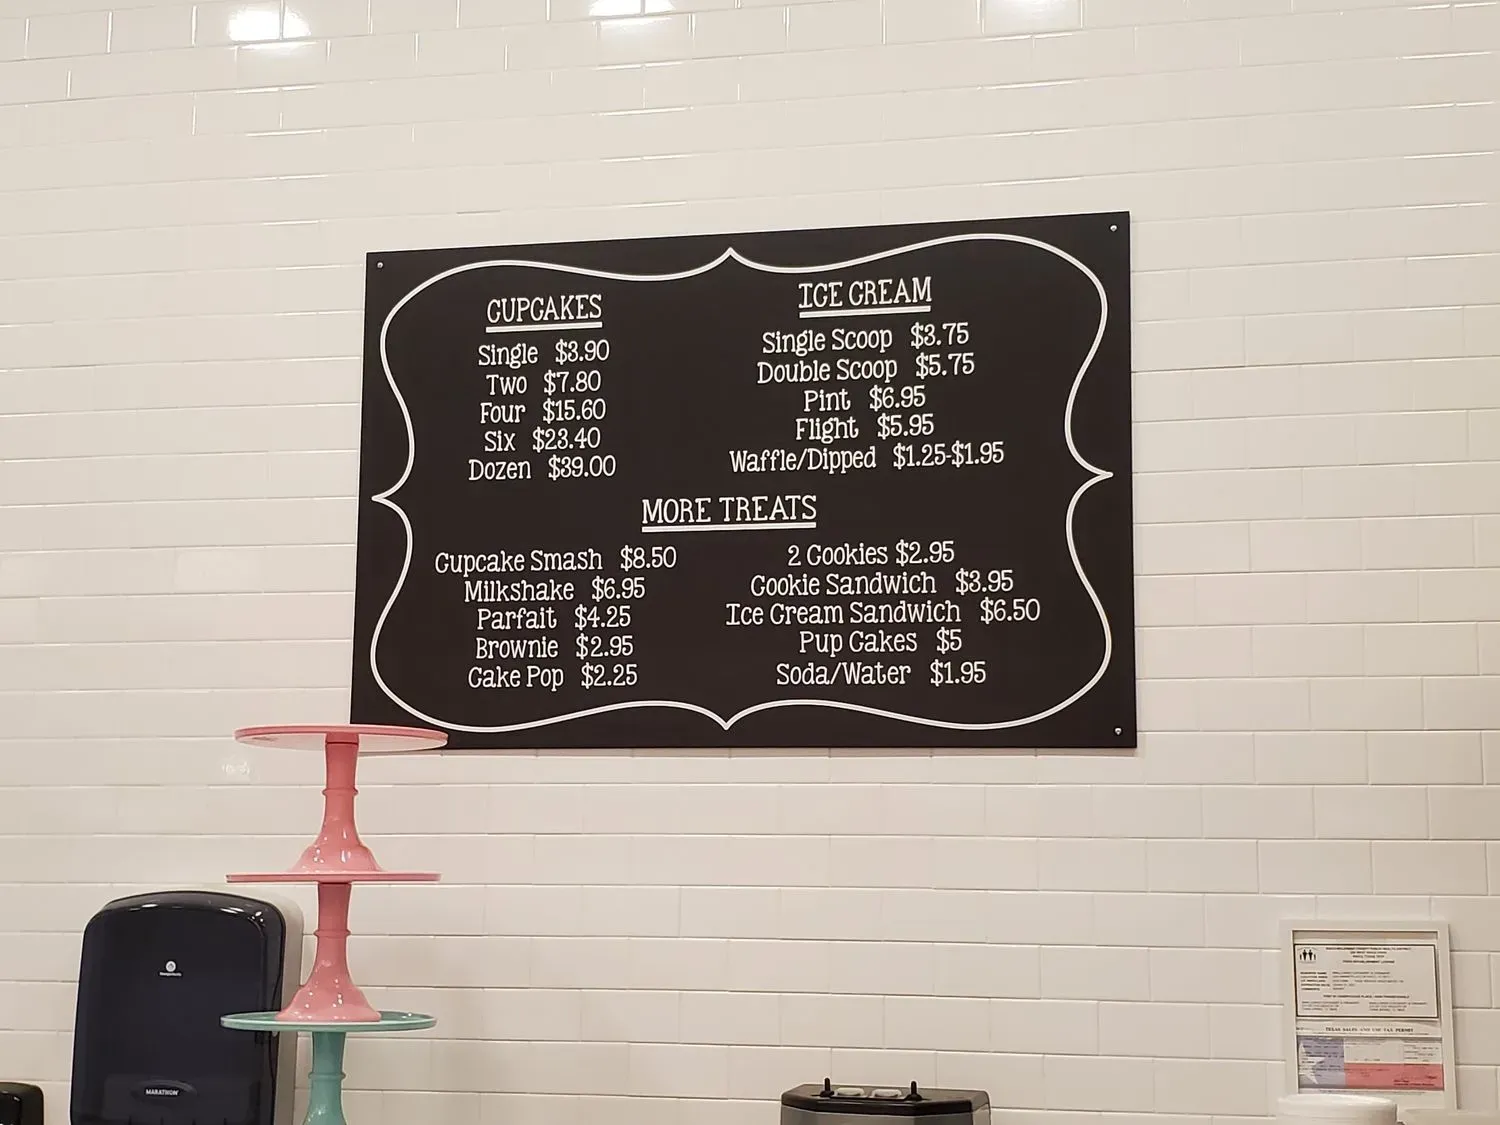 CUPCAKES
Single $3.90
Two $7.80
Four $15.60
Six $23.40
Dozen $39.00
ICE CREAM
Single Scoop $3.75
Double Scoop $5.75
Pint $6.95
Flight $5.95
Waffle/Dipped $1.25-$1.95
MORE TREATS
Cupcake Smash $8.50
Milkshake $6.95
Parfait $4.25
Brownie $2.95
Cake Pop $2.25
2 Cookies $2.95
Cookie Sandwich $3.95
Ice Cream Sandwich $6.50
Pup Cakes $5
Soda/Water $1.95
MARATHON
TEXAS SALES AND USE TAX PERMIT